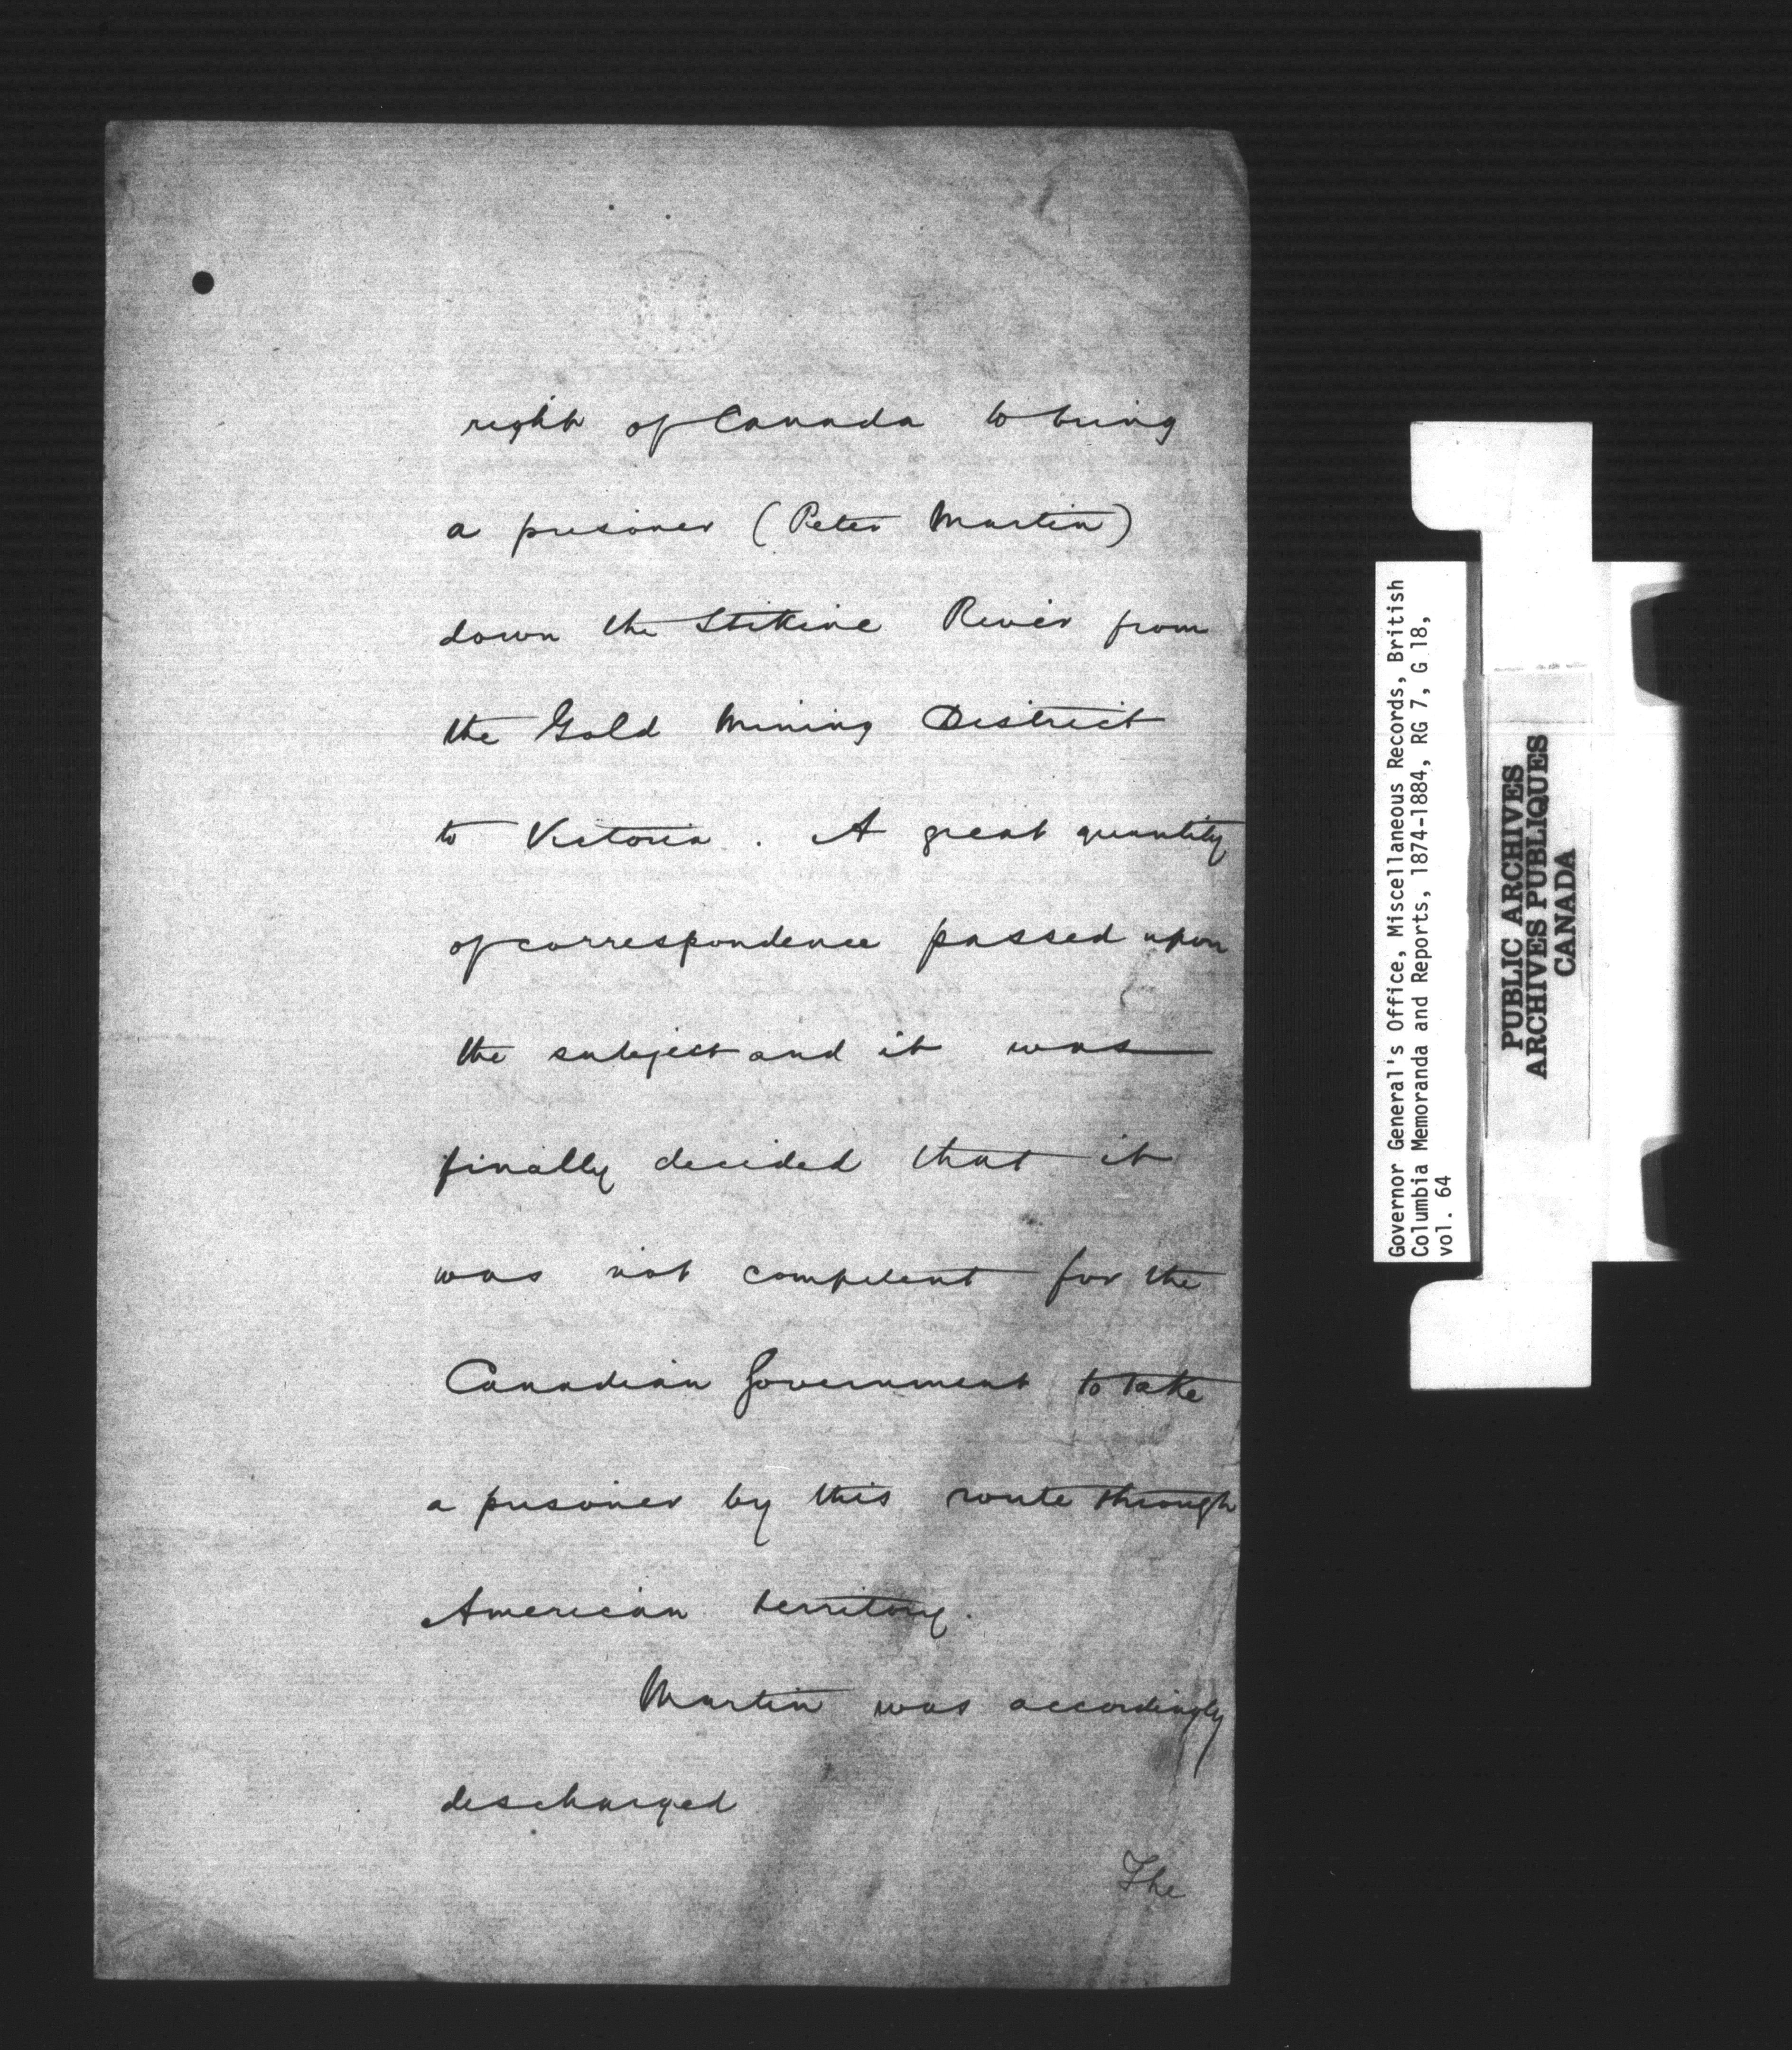 right of Canada to bring
a prisoner (Peter Martin)
down the Stikine River from
the Gold Mining District
to Victoria. A great quantity
of correspondence passed upon
the subject and it was
finally decided that it
was not competent for the
Canadian Government to take
a prisoner by this route through
American territory.
Martin was accordingly
discharged
The
Governor General's Office, Miscellaneous Records, British
Columbia Memoranda and Reports, 1874-1884, RG 7, G 18,
vol. 64
PUBLIC ARCHIVES
ARCHIVES PUBLIQUES
CANADA